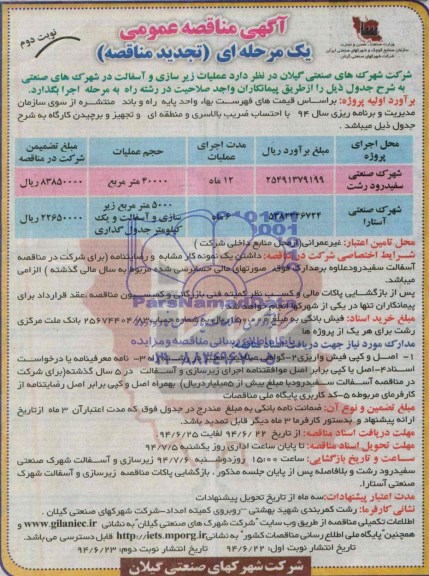 آگهی مناقصه عمومی
یک مرحله ای (تجدید مناقصه)
نوبت دوم
شرکت شهرک های صنعتی گیلان در نظر دارد عملیات زیر سازی و آسفالت در شهرک های صنعتی
به شرح جدول ذیل را ازطریق پیمانکاران واجد صلاحیت در رشته راه به مرحله اجرا بگذارد.
برآورد اولیه پروژه: براساس قیمت های فهرست بهاء واحد پایه راه و باند منتشره از سوی سازمان
مدیریت و برنامه ریزی سال ۹۴ با احتساب ضریب بالاسری و منطقه ای و تجهیز و برچیدن کارگاه به شرح
جدول ذیل میباشد.
محل اجرای پروژه
مبلغ برآورد ریال
مدت اجرای عملیات
حجم عملیات
مبلغ تضیمین شرکت در مناقصه
شهرک صنعتی سفیدرود رشت
۲۵۴۹۱۳۷۹۱۹۹
۱۲ ماه
۴۰۰۰۰ متر مربع
۸۳۸۵۰۰۰۰ ریال
شهرک صنعتی آستارا
ماه
۵۰۰۰ متر مربع زیر سازی و آسفالت و یک کیلومتر جدول گذاری
۲۲۶۵۰۰۰۰ ریال
محل تامین اعتبار: غیرعمرانی(ازمحل منابع داخلی شرکت)
شرایط اختصاصی شرکت در مناقصه: داشتن یک نمونه کار مشابه و رضایتنامه (برای شرکت در مناقصه
آسفالت سفیدرودعلاوه برمدارک فوق صورتهای مالی حسابرسی شده مربوط به سال مالی گذشته) الزامی
میباشد.
پس از بازگشایی پاکات مالی و کسب نظر کمیته فنی بازرگانی و کمیسیون مناقصه ،عقد قرارداد برای
پیمانکاران تنها در یکی از شهرکها انجام خواهد
مبلغ خرید اسناد: فیش بانکی به مبلغ ریال به شماره حساب بانک ملت مرکزی
رشت برای هر یک از پروژه ها
مدارک مورد نیاز جهت دریافت اسناد
۱- اصل و کپی فیش واریزی ۲-گواهی ۳- نامه معرفینامه یا درخواست
اسناد ۴-اصل یا کپی برابر اصل موافقتنامه اجرای زیرسازی و آسفالت در ۵ سال گذشته(برای شرکت
در مناقصه آسفالت سفیدرودبا مبلغ بیش از ۵میلیاردریال) بهمراه اصل و کپی برابر اصل رضایتنامه از
کارفرمای مربوطه ۵-کد کاربری پایگاه ملی مناقصات
مبلغ تضمین و نوع آن: ضمانت نامه بانکی به مبلغ مندرج در جدول فوق که مدت اعتبارآن ۳ ماه ازتاریخ
ارائه پیشنهاد و بدستور کارفرما ۳ ماه دیگر قابل تمدید باشد.
مهلت دریافت اسناد مناقصه: از تاریخ ۹۴/۶/۲۲ لغایت ۹۴/۶/۲۵
مهلت تحویل اسناد مناقصه: تا پایان ساعت اداری روز یکشنبه ۹۴/۷/۵
ساعت و تاریخ بازگشایی: ساعت ۱۵:۰۰ روزدوشنبه ۹۴/۷/۶ زیرسازی و آسفالت شهرک صنعتی
سفیدرود رشت و بلافاصله پس از پایان جلسه مذکور، بازگشایی پاکات مناقصه زیرسازی و آسفالت شهرک
صنعتی آستارا.
مدت اعتبار پیشنهادات: سه ماه از تاریخ تحویل پیشنهادات
نشانی کارفرما: رشت کمربندی شهید بهشتی -روبروی کمیته امداد-شرکت شهرکهای صنعتی گیلان.
اطلاعات تکمیلی مناقصه از طریق وب سایت "شرکت شهرک های صنعتی گیلان" به نشانی www.gilaniec.ir و
همچنین"پایگاه ملی اطلاع رسانی مناقصات کشور" به نشانی http://iets.mporg.ir قابل دسترسی می باشد.
تاریخ انتشار نوبت اول: ۹۴/۶/۲۲ تاریخ انتشار نوبت دوم: ۹۴/۶/۲۳
شرکت شهرکهای صنعتی گیلان
ParsNamadData
پایگاه اطلاع رسانی مناقصه و مزایده